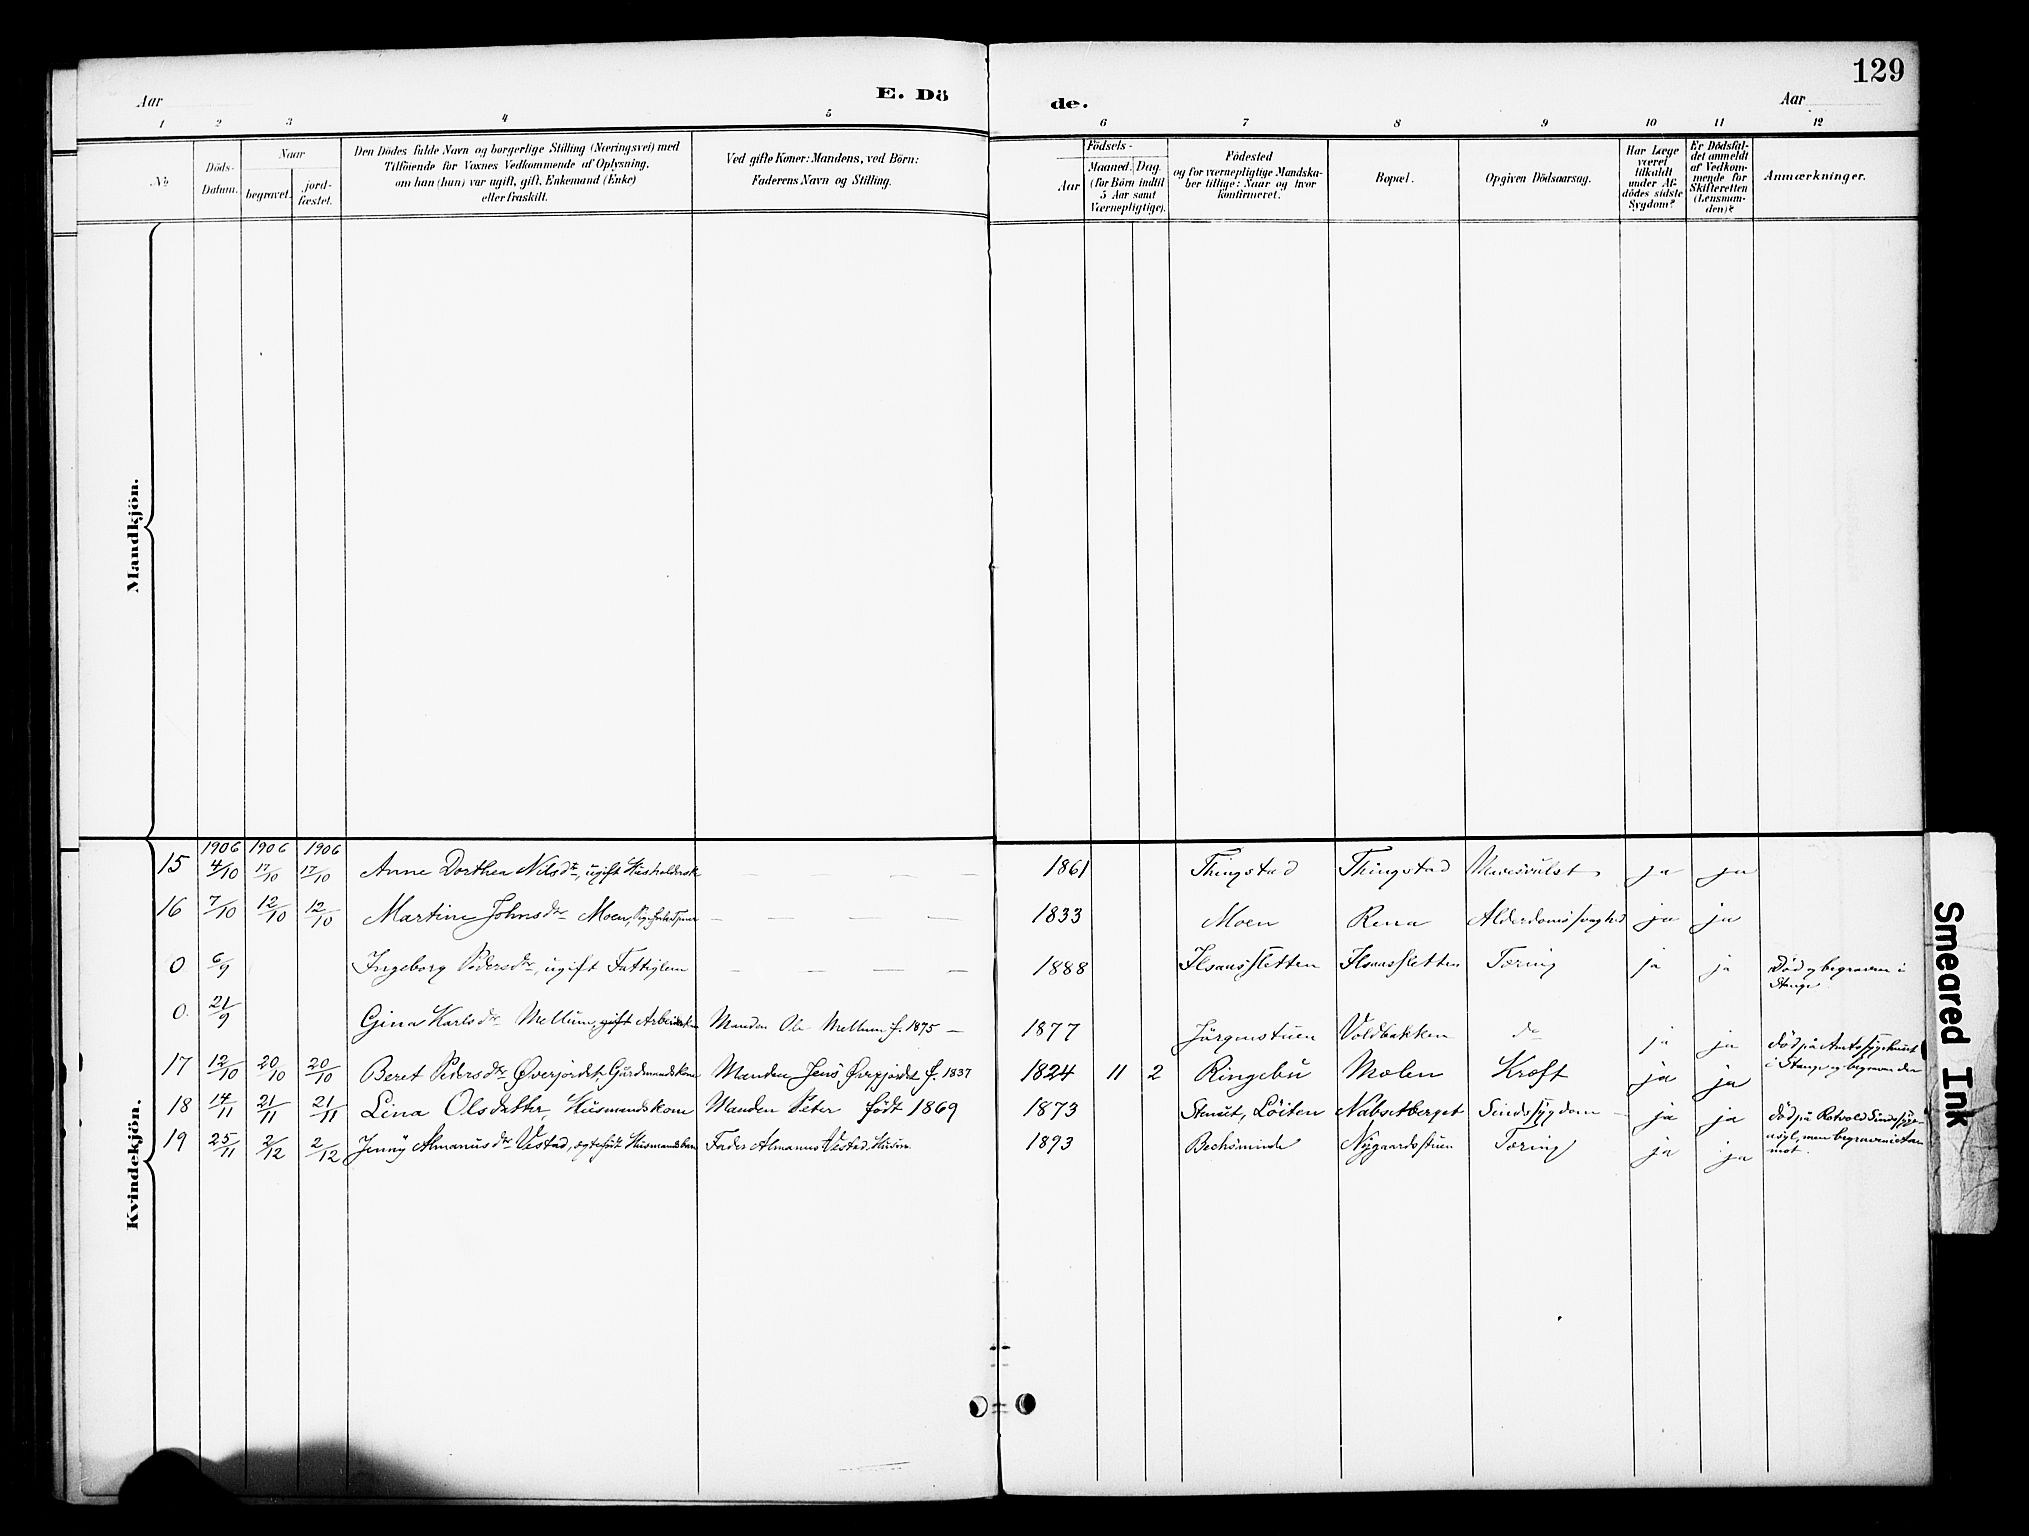 129
Aar
E. Dö
de.
Aar
1 2 3 4 5 6 7 8 9 10 11 12
No
Döds-
Datum.
Naar
begravet.
jord-
fæstet.
Den Dödes fulde Navn og borgerlige Stilling (Næringsvei) med
Tilföiende for Voxnes Vedkommende af Oplysning,
om han (hun) var ugift, gift, Enkemand (Enke)
eller fraskilt.
Ved gifte Koner: Mandens, ved Börn:
Faderens Navn og Stilling.
Födsels-
Aar
Maaned. Dag.
(for Börn indtil
5 Aar samt
Værnepligtige).
Födested
og for værnepligtige Mandska-
ber tillige: Naar og hvor
konfirmeret.
Bopæl.
Opgiven Dödsaarsag.
Har Læge
været
tilkaldt
under Af-
dödes sidste
Sygdom?
Er Dödsfal-
det anmeldt
af Vedkom-
mende for
Skifteretten
(Lensman-
den)?
Anmærkninger.
Mandkjön.
Kvindekjön.
1906 1906 1906
15 4/10 17/10 17/10 Anne Dorthea Nilsdtr, ugift Husholdersk 1861 Thingstad Thingstad Mavesvulst ja ja
16 7/10 12/10 12/10 Martine Johnsdtr Moen, — — — — 1833 Moen Rena Alderdomssvaghed ja ja
0 6/9 Ingeborg Pedersdtr, ugift Fattiglem — — — — 1888 Ilsaassletten Ilsaassletten Tæring ja ja Död og begraven i
Stange.
0. 21/9 Gina Karlsdtr Mellum, gift Manden Ole Mellum f. 1875 — 1877 Jörgenstuen Voldbakken do ja ja Död på Amtssygehuset
i Stange og begraven der
17 12/10 20/10 20/10 Beret Pedersdtr Øverjordet, Gårdmandskone Manden Jens Øverjordet f. 1837 1824 11 2 Ringebu Molen Kræft ja ja
18 14/11 21/11 21/11 Lina Olsdatter, Husmandskone Manden Peter født 1869 1873 Stensæt, Löiten Nabsetberget Sindssygdom ja ja Död på Rotvold Sindssyge-
asyl, men begraven i Aa
mot.
19 25/11 2/12 2/12 Jenny Almanusdtr Vestad, ægtefödt Husmandsbarn Fader Almanus Vestad, Husm. 1893 Bechsminde Nygaardsstuen Tæring ja ja
Smeared Ink